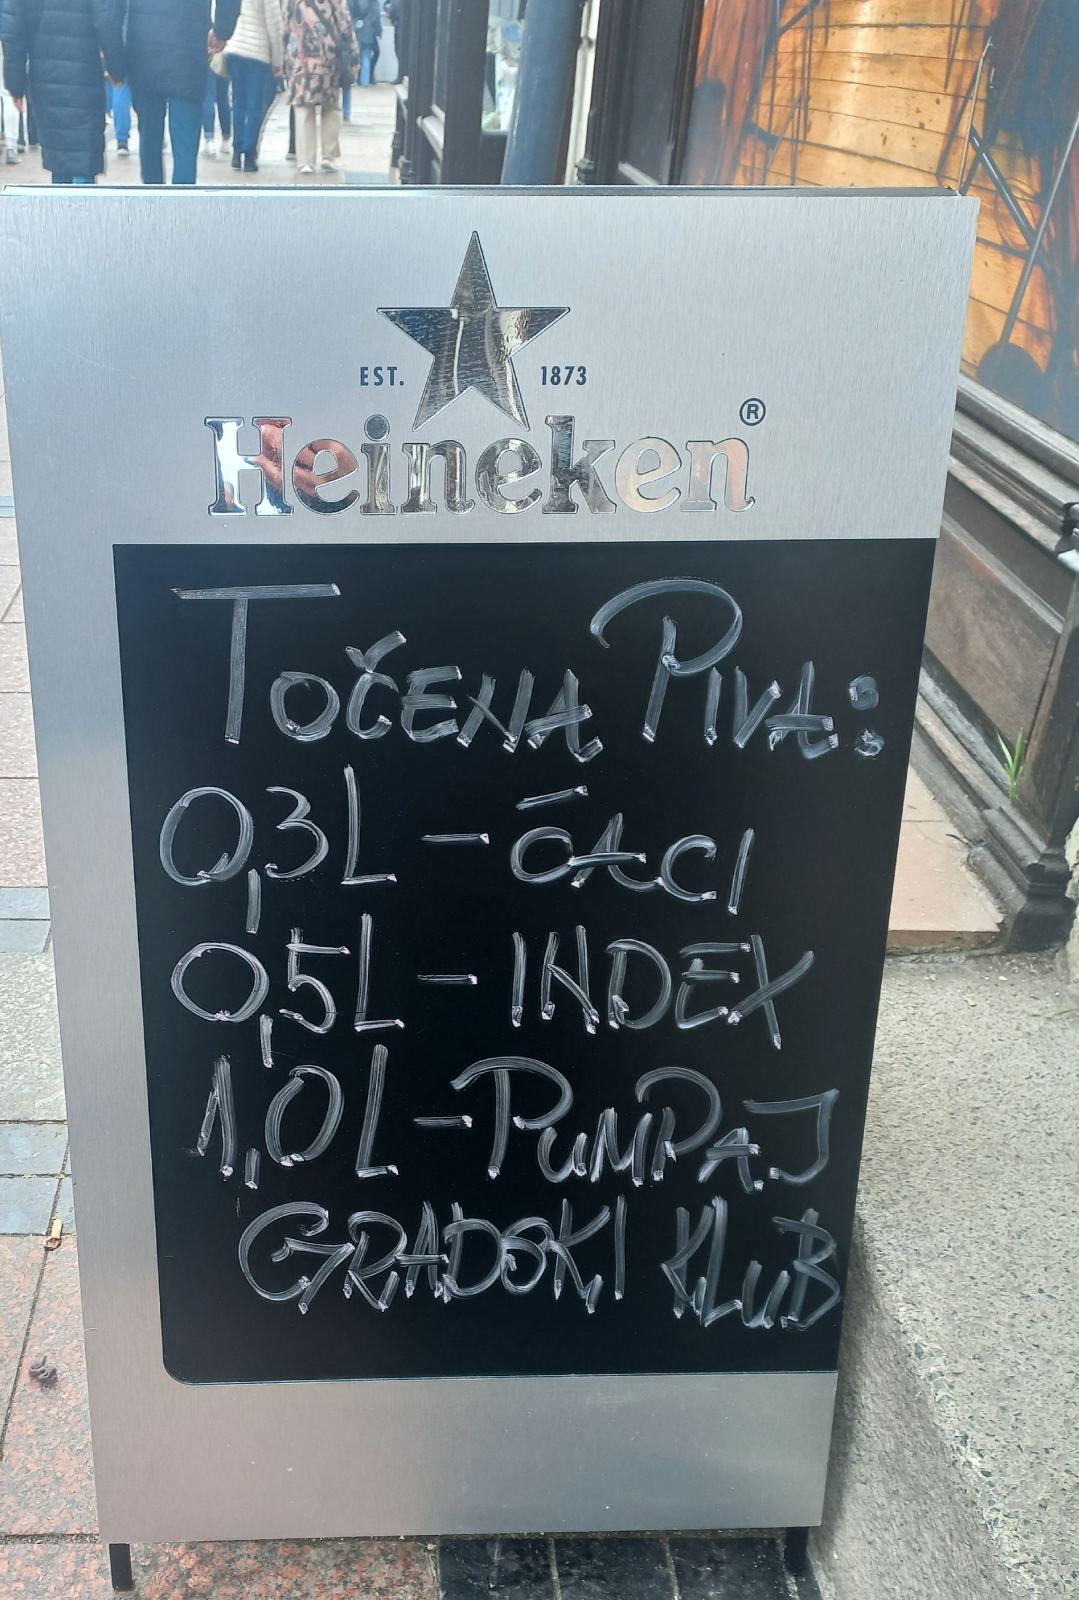 EST. 1873
Heineken®
TOČENA PIVA:
0,3L - ĆACI
0,5L - INDEX
1,0L - PUMPAJ
GRADSKI KLUB